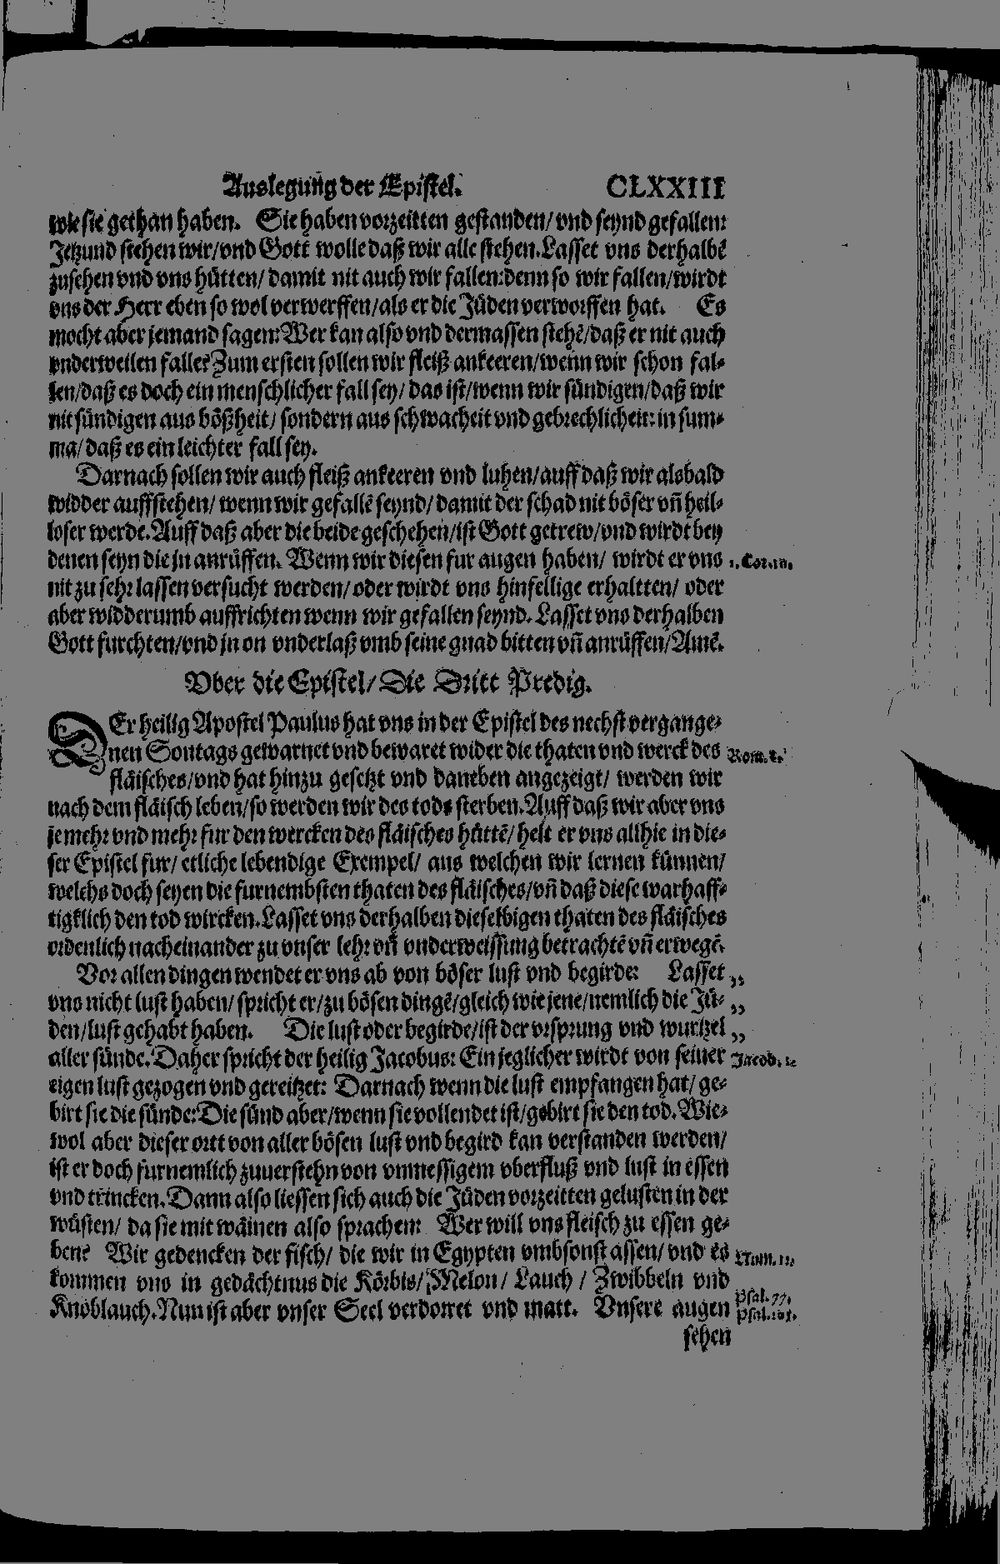 Auslegung der Epistel. CLXXIII
wie sie gethan haben. Sie haben vorzeitten gestanden/ vnd seynd gefallen:
Jetzund stehen wir/ vnd Gott wolle daß wir alle stehen. Lasset vns derhalbē
zusehen vnd vns hütten/ damit nit auch wir fallen: denn so wir fallen/ wirdt
vns der Herr eben so wol verwerffen/ als er die Jüden verworffen hat. Es
mocht aber jemand sagen: Wer kan also vnd dermassen stehē/ daß er nit auch
vnderweilen falle? Zum ersten sollen wir fleiß ankeeren/ wenn wir schon fal-
len/ daß es doch ein menschlicher fall sey/ das ist/ wenn wir sündigen/ daß wir
nit sündigen aus bößheit/ sondern aus schwacheit vnd gebrechlicheit: in sum-
ma/ daß es ein leichter fall sey.
Darnach sollen wir auch fleiß ankeeren vnd luhen/ auff daß wir alsbald
widder auffstehen/ wenn wir gefallē seynd/ damit der schad nit böser vñ heil-
loser werde. Auff daß aber die beide geschehen/ ist Gott getrew/ vnd wirdt bey
denen seyn die jn anrüffen. Wenn wir diesen fur augen haben/ wirdt er vns
nit zu sehr lassen versucht werden/ oder wirdt vns hinfellige erhaltten/ oder
aber widderumb auffrichten wenn wir gefallen seynd. Lasset vns derhalben
Gott furchten/ vnd jn on vnderlaß vmb seine gnad bitten vñ anrüffen/ Amē.
Vber die Epistel/ Die Dritt Predig.
DEr heilig Apostel Paulus hat vns in der Epistel des nechst vergange-
nen Sontags gewarnet vnd bewaret wider die thaten vnd werck des
fläisches/ vnd hat hinzu gesetzt vnd daneben angezeigt/ werden wir
nach dem fläisch leben/ so werden wir des tods sterben. Auff daß wir aber vns
je mehr vnd mehr fur den wercken des fläisches hüttē/ helt er vns allhie in die-
ser Epistel fur/ etliche lebendige Exempel/ aus welchen wir lernen künnen/
welchs doch seyen die furnembsten thaten des fläisches/ vñ daß diese warhaff-
tigklich den tod wircken. Lasset vns derhalben dieselbigen thaten des fläisches
ordenlich nacheinander zu vnser lehr vñ vnderweissung betrachtē vñ erwegē.
Vor allen dingen wendet er vns ab von böser lust vnd begirde: Lasset „
vns nicht lust haben/ spricht er/ zu bösen dingē/ gleich wie jene/ nemlich die Jü- „
den/ lust gehabt haben. Die lust oder begirde/ ist der vrsprung vnd wurtzel „
aller sünde. Daher spricht der heilig Jacobus: Ein jeglicher wirdt von seiner
eigen lust gezogen vnd gereitzet: Darnach wenn die lust empfangen hat/ ge-
birt sie die sünde: Die sünd aber/ wenn sie vollendet ist/ gebirt sie den tod. Wie-
wol aber dieser ortt von aller bösen lust vnd begird kan verstanden werden/
ist er doch furnemlich zuuerstehn von vnmessigem vberfluß vnd lust in essen
vnd trincken. Dann also liessen sich auch die Jüden vorzeitten gelusten in der
wüsten/ da sie mit wäinen also sprachen: Wer will vns fleisch zu essen ge-
ben? Wir gedencken der fisch/ die wir in Egypten vmbsonst assen/ vnd es
kommen vns in gedächtnus die Körbis/ Melon/ Lauch / Zwibbeln vnd
Knoblauch. Nun ist aber vnser Seel verdorret vnd matt. Vnsere augen
sehen
Rom. 8.
Jacob. 1.
Num. 11.
Psal. 77.